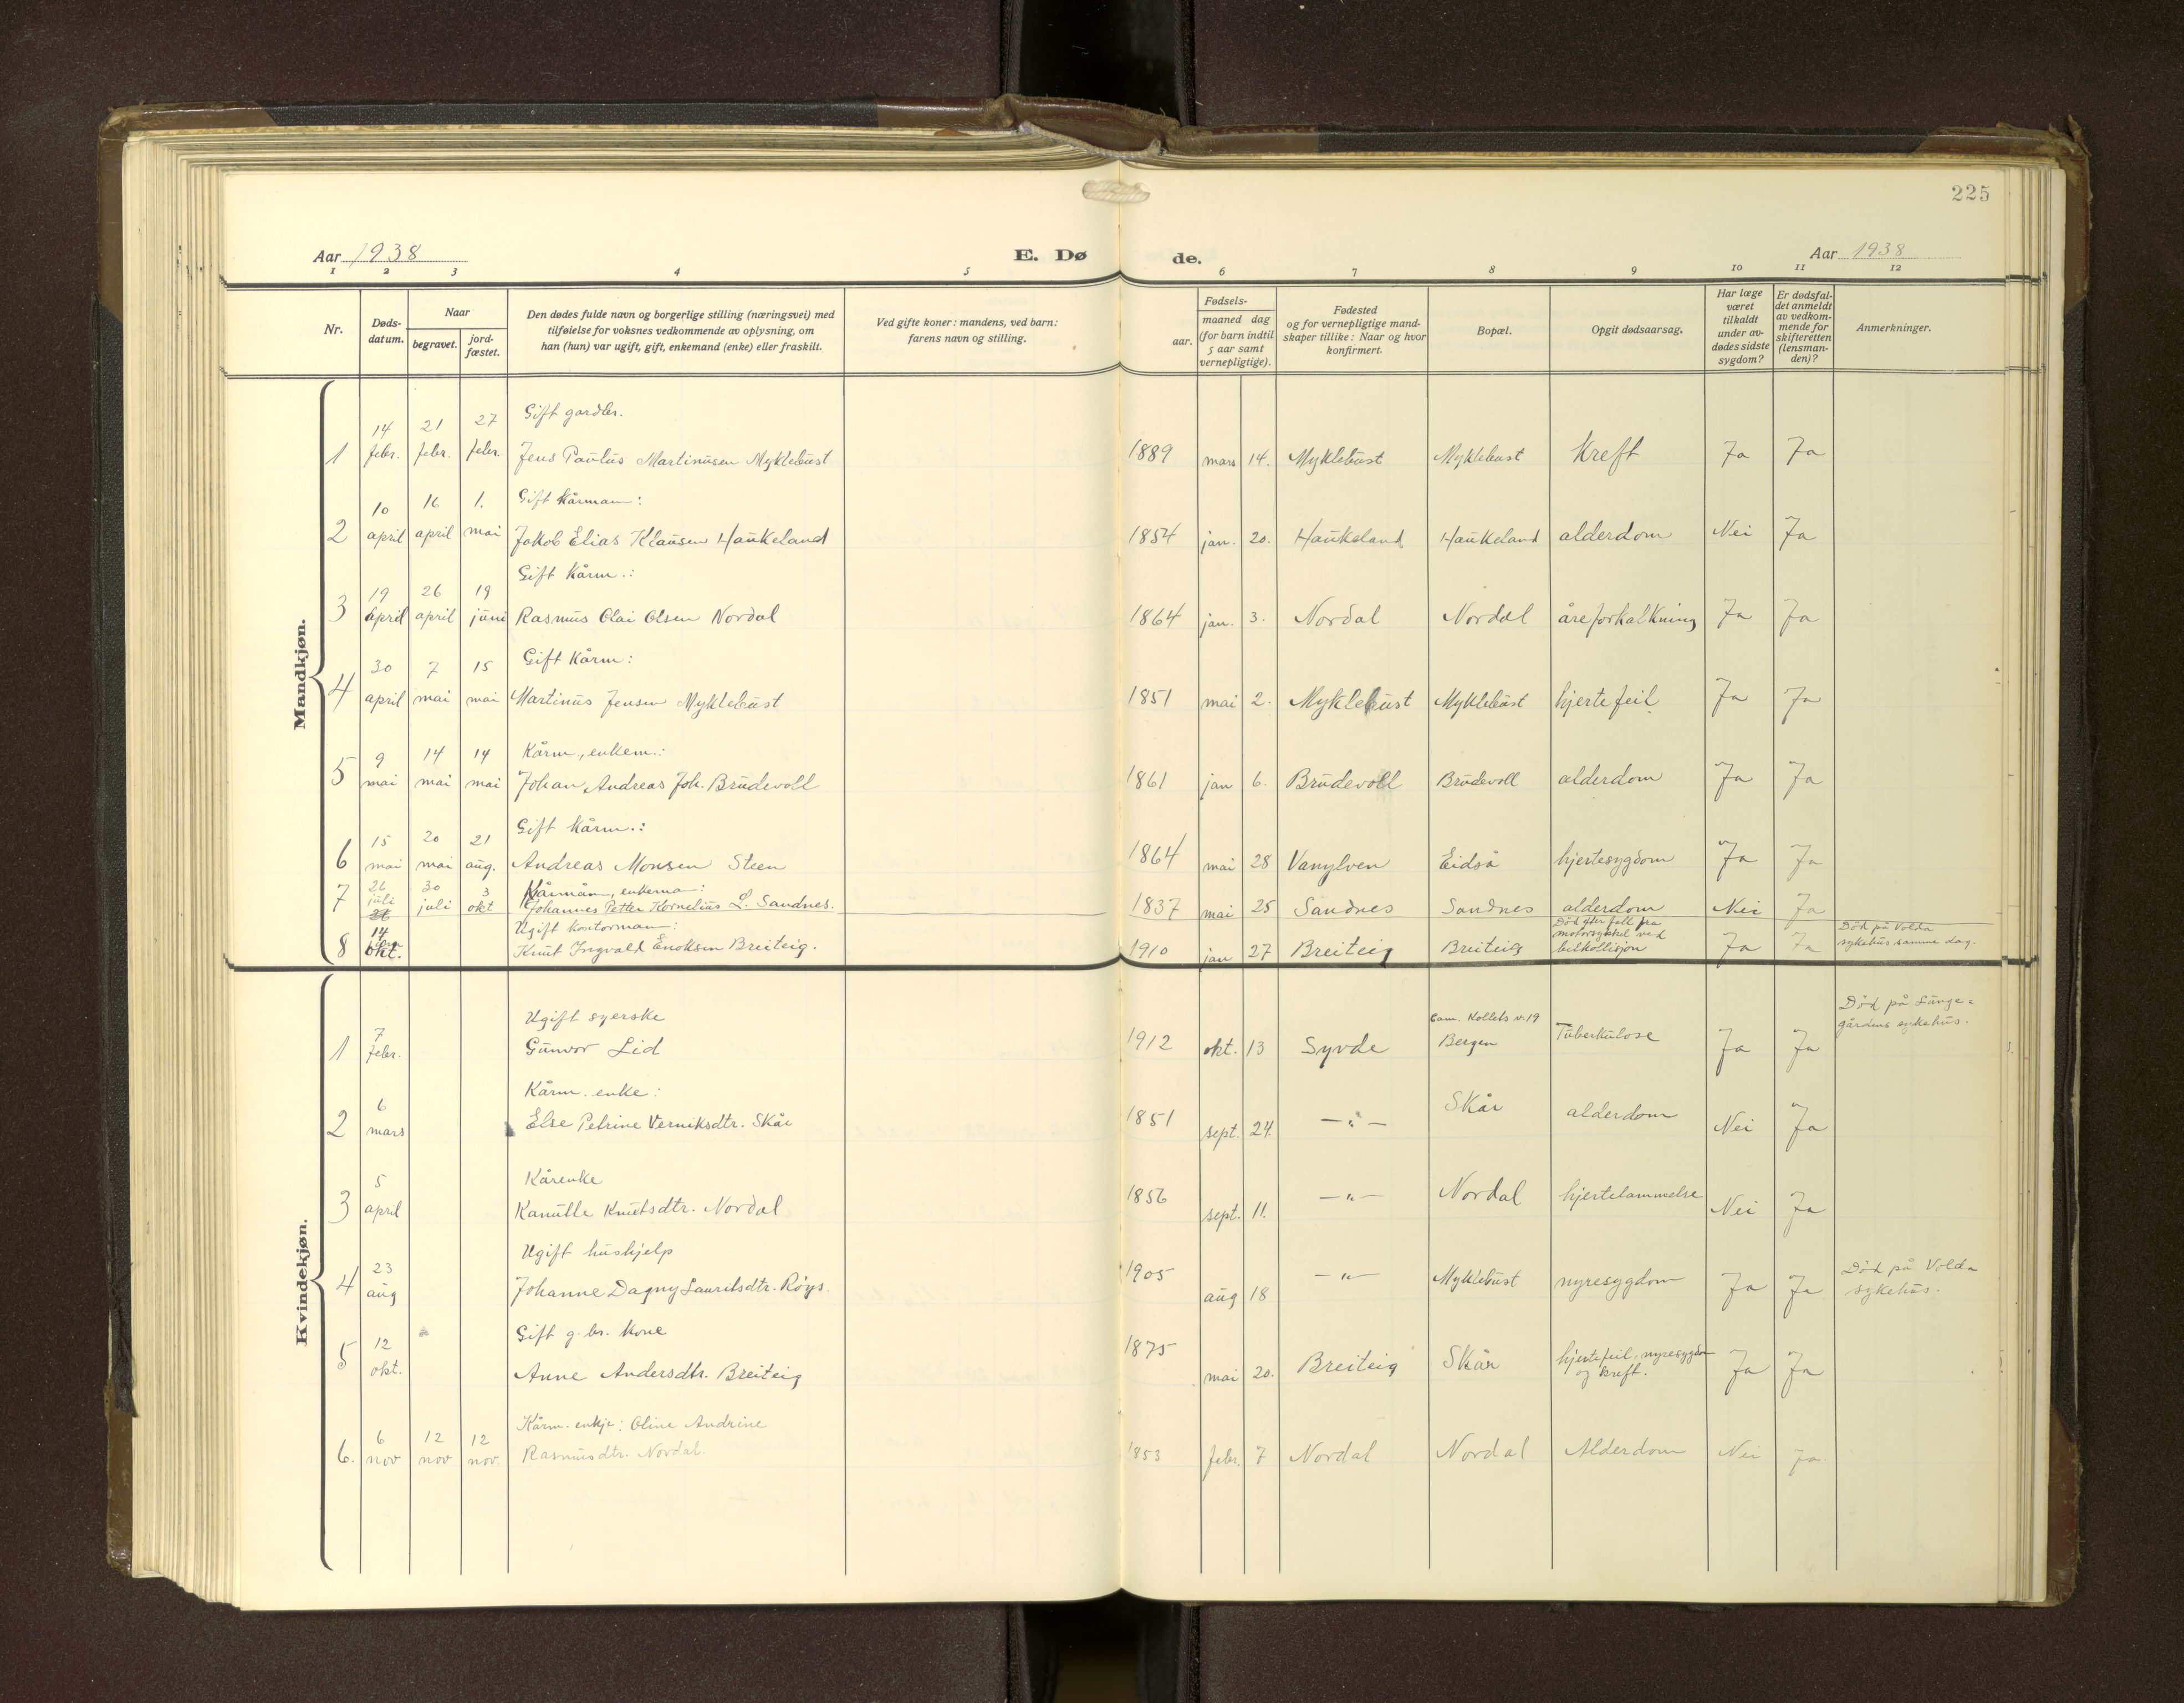 225
Aar 1938
E. Døde.
Aar 1938
1 2 3 4 5 6 7 8 9 10 11 12
Nr.
Døds-datum.
Naar
begravet.
jord-fæstet.
Den dødes fulde navn og borgerlige stilling (næringsvei) med
tilføielse for voksnes vedkommende av oplysning, om
han (hun) var ugift, gift, enkemand (enke) eller fraskilt.
Ved gifte koner: mandens, ved barn:
farens navn og stilling.
Fødsels-
aar.
maaned dag
(for barn indtil
5 aar samt
vernepligtige).
Fødested
og for vernepligtige mand-
skaper tillike: Naar og hvor
konfirmert.
Bopæl.
Opgit dødsaarsag.
Har læge
været
tilkaldt
under av-
dødes sidste
sygdom?
Er dødsfal-
det anmeldt
av vedkom-
mende for
skifteretten
(lensman-
den)?
Anmerkninger.
Mandkjøn.
Gift gardbr.
1 14 febr. 21 febr. 27 febr. Jens Paulus Martinusen Myklebust 1889 mars 14. Myklebust Myklebust Kreft Ja Ja
Gift Kårmann:
2 10 april 16 april 1. mai Jakob Elias Klausen Haukeland 1854 jan. 20. Haukeland Haukeland alderdom Nei Ja
Gift Kårm.:
3 19 april 26 april 19 juni Rasmus Olai Olsen Nordal 1864 jan. 3. Nordal Nordal åreforkalkning Ja Ja
Gift Kårm:
4 30 april 7 mai 15 mai Martinus Jensen Myklebust 1851 mai 2. Myklebust Myklebust hjertefeil Ja Ja
Kårm., enkem.:
5 9 mai 14 mai 14 mai Johan Andreas Joh. Brudevoll 1861 jan 6. Brudevoll Brudevoll alderdom Ja Ja
Gift Kårm.:
6 15 mai 20 mai 21 aug. Andreas Monsen Steen 1864 mai 28 Vanylven Eidså hjertesygdom Ja Ja
Kårmann, enkema:
7 26 juli 30 juli 3 okt Johannes Petter Kornelius L. Sandnes. 1837 mai 25 Sandnes Sandnes alderdom Nei Ja
Ugift kontorman:
8 14 okt. Knut Ingvald Enoksen Breiteig. 1910 jan 27 Breiteig Breiteig Død efter fall fra
motorsykkel ved
bilkollisjon Ja Ja Død på Volda
sykehus samme dag.
Kvindekjøn.
Ugift syerske
1 7 febr. Gunvor Lid 1912 okt. 13 Syvde Cam. Kolletts v. 19
Bergen Tuberkulose Ja Ja Død på Lunge-
gårdens sykehus.
Kårm. enke:
2 6 mars Else Petrine Verniksdtr. Skår 1851 sept. 24. —"— Skår alderdom Nei Ja
Kårenke
3 5 april Kanutte Knutsdtr. Nordal 1856 sept. 11. —"— Nordal hjertelammelse Nei Ja
Ugift hushjelp
4 23 aug Johanne Dagny Lauritsdtr. Röys. 1905 aug 18 —"— Myklebust nyresygdom Ja Ja Död på Volda
sykehus.
Gift g. br. kone
5 12 okt. Anne Andersdtr. Breiteig 1875 mai 20. Breiteig Skår hjertefeil, nyresygdom
og kreft. Ja Ja
Kårm. enkje: Oline Andrine
6. 6 nov 12 nov 12 nov. Rasmusdtr. Nordal. 1853 febr. 7 Nordal Nordal Alderdom Nei Ja